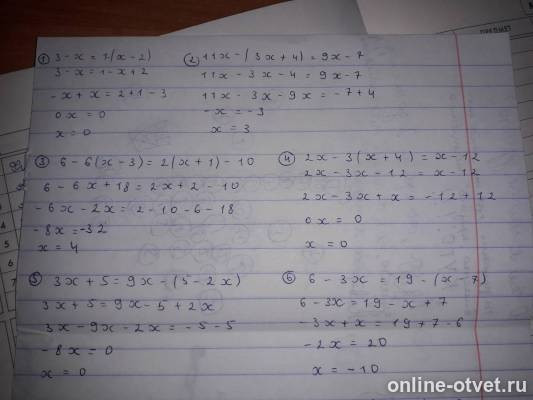 ① 3-x=1(x-2)
3-x=1-x+2
-x+x=2+1-3
0x=0
x=0
② 11x-(3x+4)=9x-7
11x-3x-4=9x-7
11x-3x-9x=-7+4
-x=-3
x=3
③ 6-6(x-3)=2(x+1)-10
6-6x+18=2x+2-10
-6x-2x=2-10-6-18
-8x=-32
x=4
④ 2x-3(x+4)=x-12
2x-3x-12=x-12
2x-3x+x=-12+12
0x=0
x=0
⑤ 3x+5=9x-(5-2x)
3x+5=9x-5+2x
3x-9x-2x=-5-5
-8x=0
x=0
⑥ 6-3x=19-(x-7)
6-3x=19-x+7
-3x+x=19+7-6
-2x=20
x=-10
online-otvet.ru